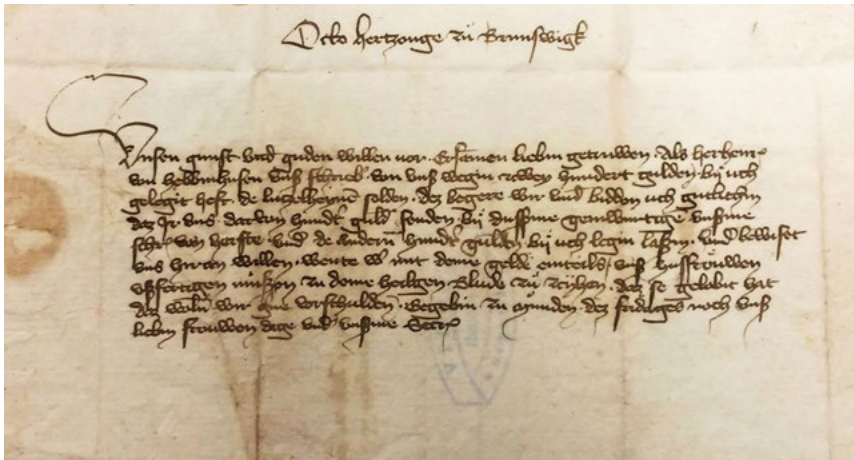 Otto hertzouge zu Brunswigk
Unsen gunst und guden willen vor. Ersamen liebin getruwen. Als her henr
von unß schrib von unß wegin zwey hundert gulden by uch
gelegit heft. de solden. dez begere wir und bidden uch gutlichin
daz Ir uns. darvon hundt guld senden. by dussime geinwurtige unßme
schr von herste. und de andern hundt gulden by uch legin laßin. und bewiset
uns hiran willen. wente w mit deme gelde einteils unß hussfrouwen
ußfertigen mußen zu deme heilgen Blude zu zcihen. daz se gelabit hat
daz woln wir vorschulden. Gegebin zu munden. dez fridages noch unß
liebin frouwen dage und unßme Secr